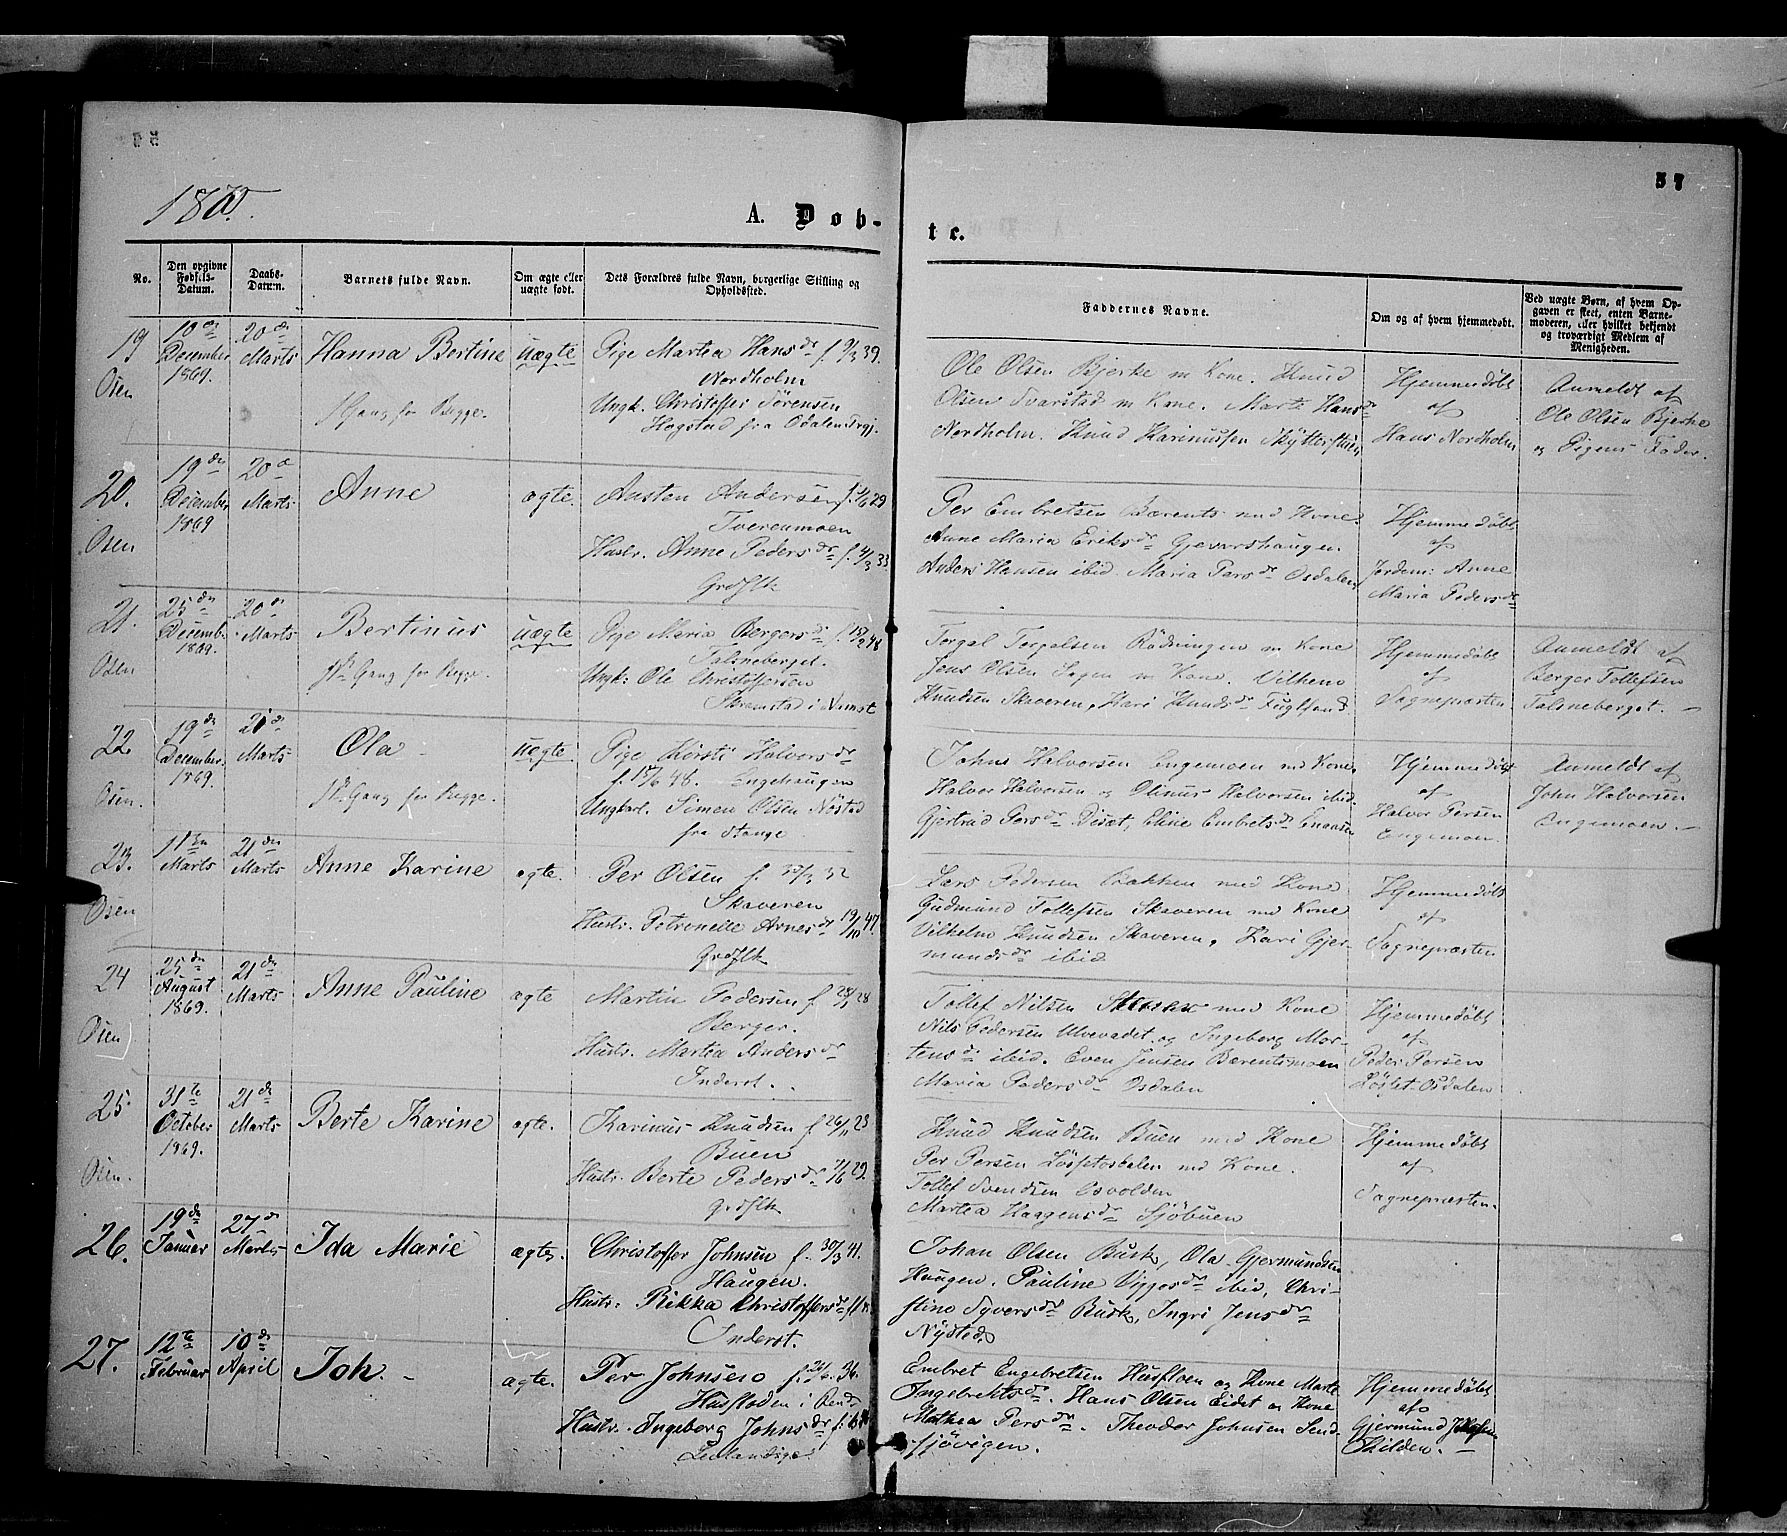 57
1870.
A. Døb-
te.
No.
Den opgivne Fødsels-Datum.
Daabs-Datum.
Barnets fulde Navn.
Om ægte eller uægte født.
Dets Forældres fulde Navn, borgerlige Stilling og Opholdssted.
Faddernes Navne.
Om og af hvem hjemmedøbt.
Ved uægte Børn, af hvem Opgaven er skeet, enten Barnemoderen, eller hvilket bekjendt og troværdigt Medlem af Menigheden.
19 Osen
10de December 1869.
20de Marts
Hanna Bertine
1ste Gang for Begge.
uægte
Pige Martea Hansdr f. 9/3 39.
Nordholm
Ungk. Christoffer Sørensen
Hogstad fra Odalen
Ole Olsen Bjerke m Kone. Knud
Olsen Tvarstad m Kone. Marte Hansdr
Nordholm. Knud Karinusen
Hjemmedøbt
af
Hans Nordholm
Anmeldt af
Ole Olsen Bjerke
og Pigens Fader.
20. Osen
19de December 1869
20de Marts
Anne
ægte.
Austen Andersen
Tverenmoen
Hustr. Anne Pedersdr f. 4/3 33
Per Embretsen Bærents med Kone.
Anne Maria Eriksdr Gjevarshaugen
Anders Hansen ibid. Maria Persdr Osdalen
Hjemmedøbt
af
Jordem: Anne
Maria Pedersdr
21. Osen
25de December 1869.
20de Marts
Bertinus
1ste Gang for Begge.
uægte
Pige Maria Bergersdr
Talsneberget.
Ungk: Ole Christoffersen
Torgal Torgalsen Rødningen m Kone
Jens Olsen Sagen m Kone. Vilhem
Knudsen Skaveren, Kari Knudsdr
Hjemmedøbt
af
Sognepræsten
Anmeldt af
Berger Tollefsen
Talsneberget. -
22. Osen.
19de December. 1869.
21de Marts
Ola
1ste Gang for Begge.
uægte
Pige Kersti Halvorsdr
f. 15/6 48. Engehaugen
Ungkarl. Simen Olsen Nøstad
fra Stange
Johns Halvorsen Engemoen med Kone.
Halvor Halvorsen og Olinus Halvorsen ibid.
Gjertrud Persdr Diset, Eline Embretsdr Enaasen
Hjemmedøbt
af
Halvor Persen
Engemoen.
Anmeldt af
John Halvorsen
Engemoen. -
23. Osen
11te Marts
21de Marts
Anne Karine
ægte.
Per Olsen
Skaveren
Hustr. Petrenelle Arnesdr 19/10 47.
Lars Pedersen Bakken med Kone
Gudmund Tollefsen Skaveren med Kone
Vilhelm Knudsen Skaveren, Kari Gjer-
mundsdr ibid
Hjemmedøbt
af
Sognepræsten
24 Osen
25de August 1869.
21de Marts
Anne Pauline
ægte
Martin Pedersen
Berger.
Hustr. Martea Andersdr
Inderst.
Tollef Nilsen med Kone
Nils Pedersen Ulvevadet og Ingeborg Mor-
tensdr ibid. Even Jensen Bærentsmoen
Maria Pedersdr Osdalen
Hjemmedøbt
af
Peder Persen
Løset Osdalen
25. Osen.
31te October 1869.
21de Marts
Berte Karine
ægte.
Karinus Knudsen f 26/11 23
Buen
Hustr. Berte Pedersdr 7/6 29.
Knud Knudsen Buen med Kone
Per Persen Løssetosdalen med Kone.
Tollef Svendsen Osvolden
Martea Haagensdr Sjøbuen
Hjemmedøbt
af
Sognepræsten.
26.
19de Januar
27de Marts
Ida Marie
ægte.
Christoffer Johnsen f. 30/3 41.
Haugen.
Hustr: Rikka Christoffersdr
Inderst.
Johan Olsen Busk, Ola Gjermundsen
Haugen. Pauline Viggosdr ibid, Chri-
stine Syversdr Busk, Ingri Jensdr
Nysted.
27.
12te Februar
10de April
Joh. -
ægte.
Per Johnsen
Husfloden i
Hustr. Ingeborg Johnsdr
Embret Engebretsen Husfloen og Kone Marte
Ingebretsdr. Hans Olsen Eidet og Kone
Mathea Persdr. Theodor Johnsen Send-
sjøvigen.
Hjemmedøbt
af
Gjermund
Kilden. -